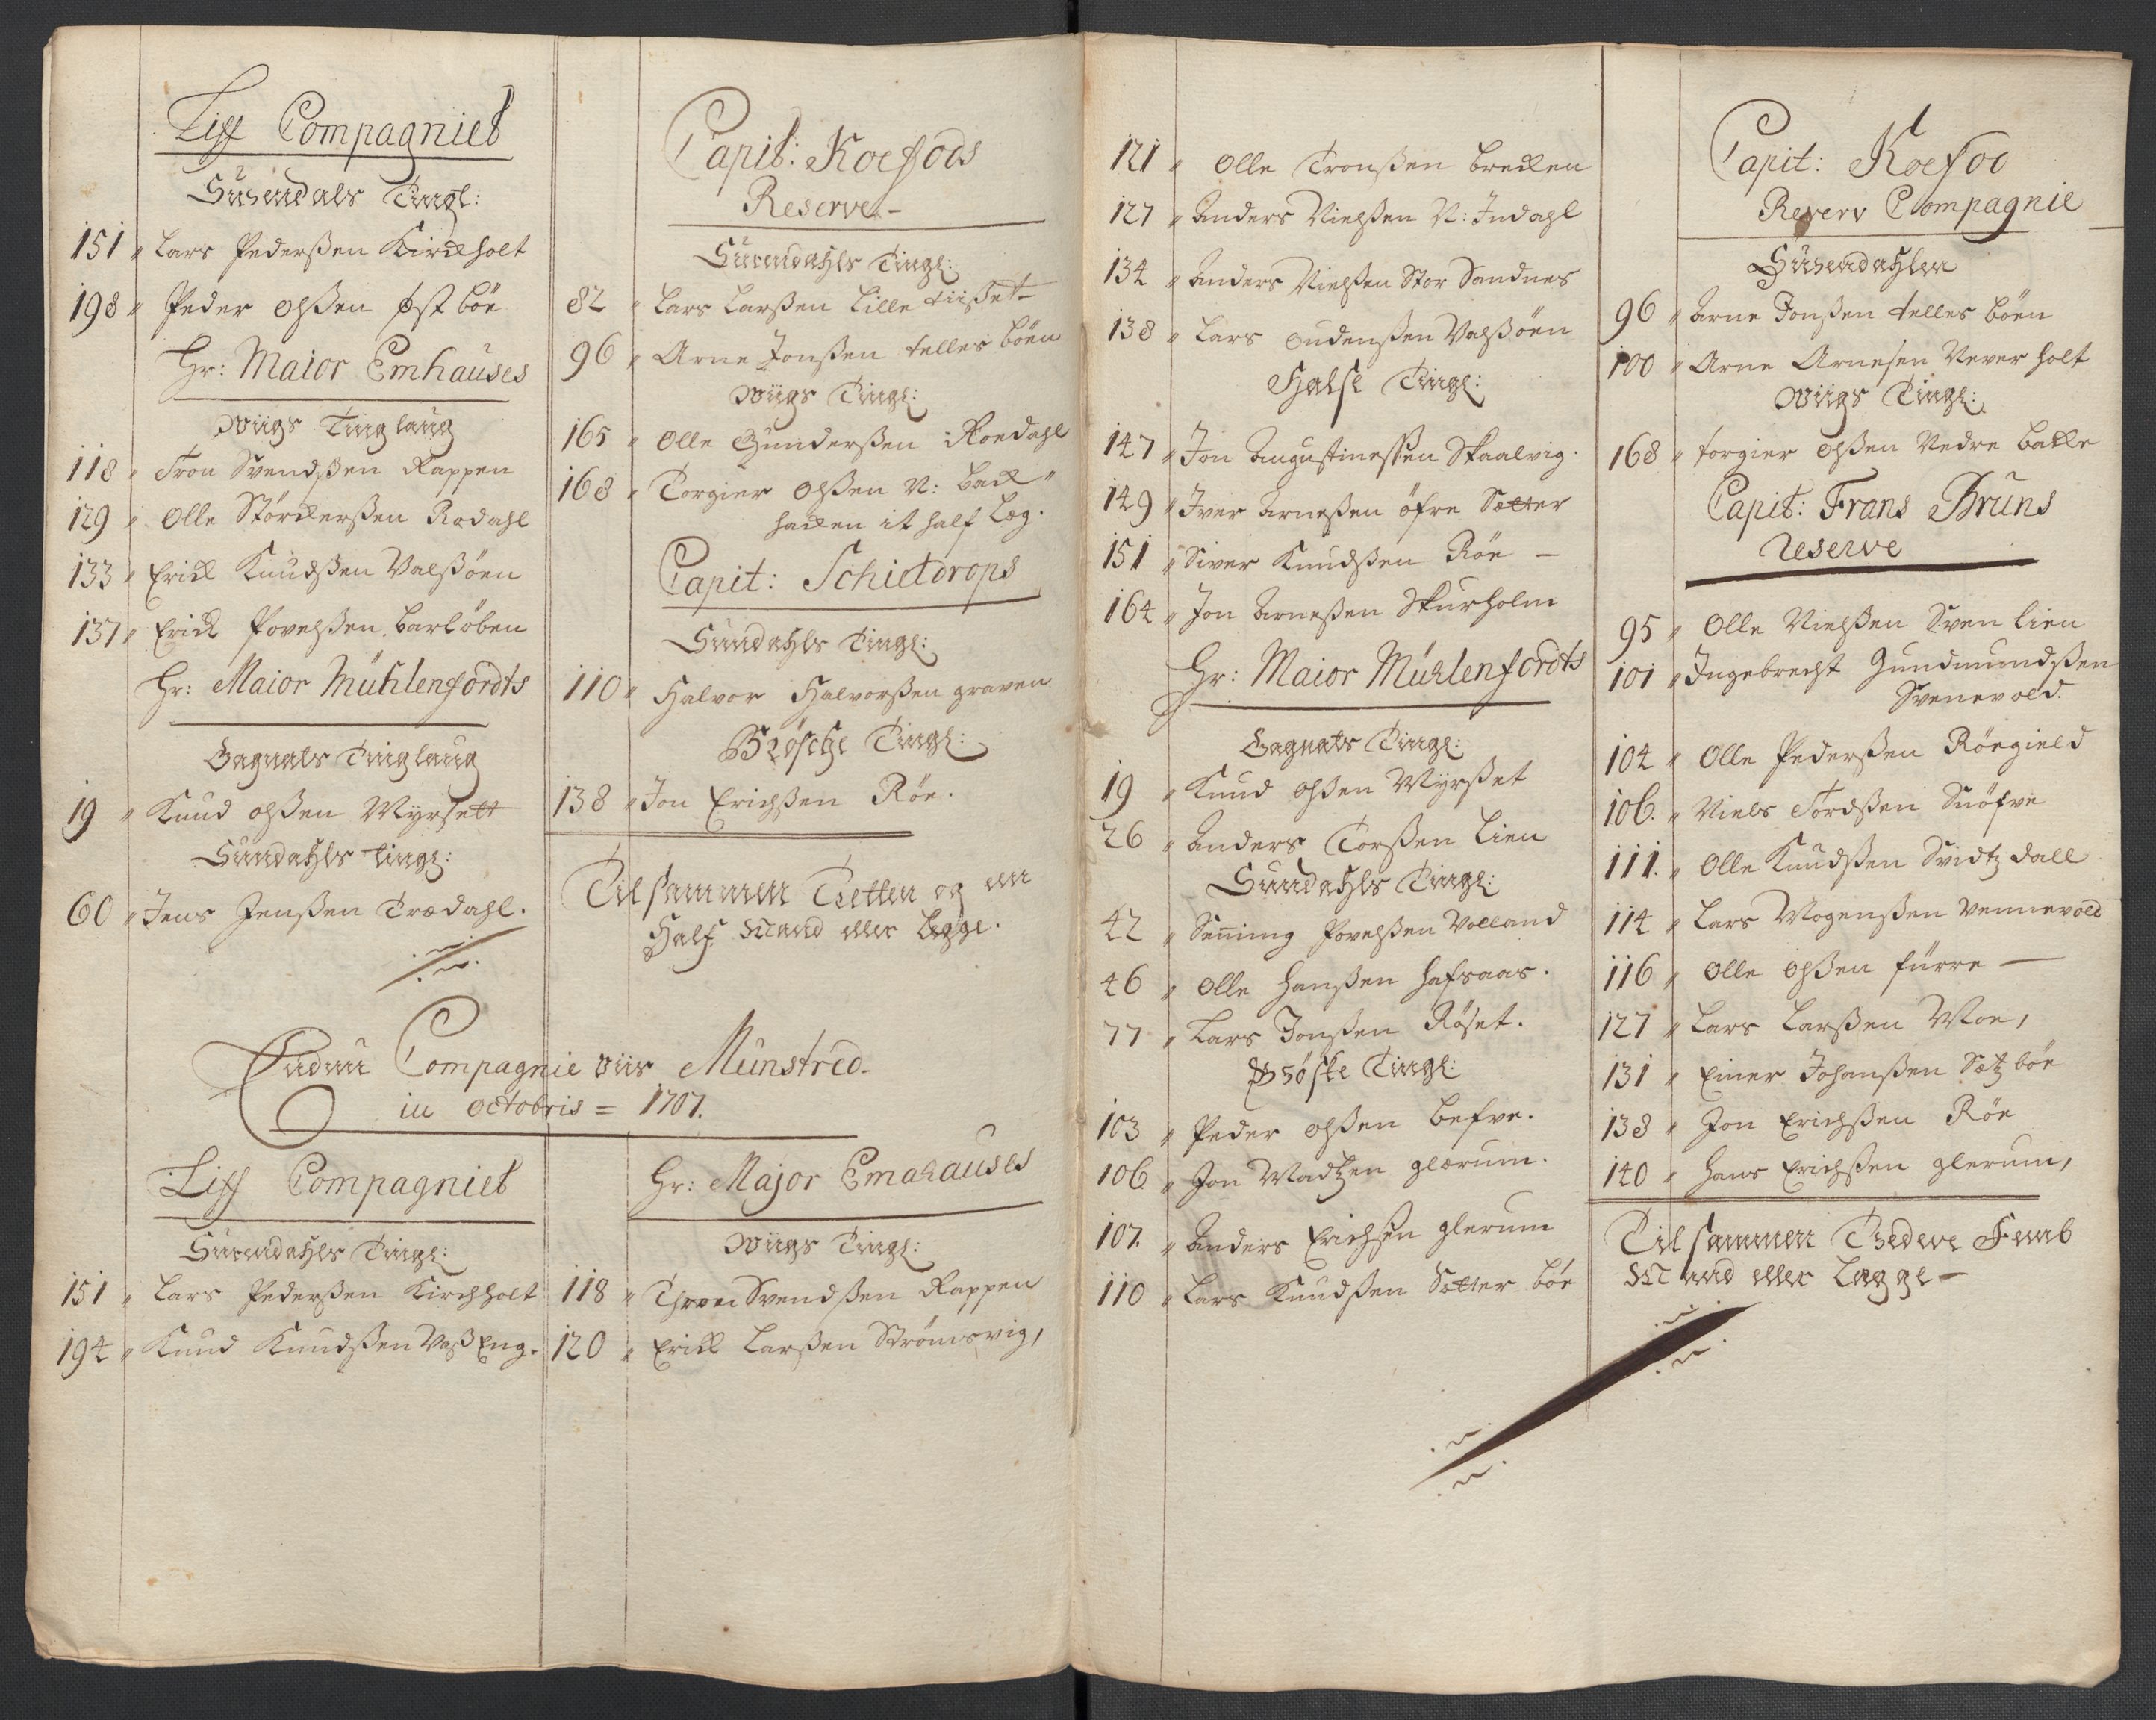 Liff Compagniet
Surendals Tingl:
151 " Lars Pederßen Kirckholt
198 " Peder Olßen Østböe
Hr: Maior Emhauses
Wiigs Tinglaug
118 " Tron Svendßen Kappen
129 " Olle Störckerßen Rodahl
133 " Erick Knudßen Valßöen
137 " Erick Povelßen Barløben
Hr: Maior Mühlenfordts
Gagnats Tinglaug
19 " Knud Olßen Myrsett
Sundahls Tingl:
60 " Jens Jenßen Trædahl.
Capit: Koefods
Reserve
Surendahls Tingl:
82 " Lars Larßen Lille tiißet
96 " Arne Jonßen telles böen
Wiigs Tingl:
165 " Olle Gunderßen Roedahl
168 " Torgier Olßen N: Back "
hacken it half Læg.
Capit: Schieldrops
Sundahls Tingl:
110 " Halvor Halvorßen graven
Brøsche Tingl:
138 " Jon Erichßen Röe.
Tilsammen Tretten og en
Half Mand eller Legge.
Endnu Compagnie viis Münstred
in Octobris = 1707.
Liff Compagniet
Surendahls Tingl:
151 " Lars Pederßen Kirchholt
194 " Knud Knudßen Vaß Eng.
Hr: Major Emahauses
Wiigs Tingl:
118 " Thron Svendßen Kappen
120 " Erick Larßen Strömsvig,
121 " Olle Tronßen Brecken
127 " Anders Nielßen N: Indahl
134 " Anders Nielßen Stor Sandnes
138 " Lars Oudenßen Valßöen
Halse Tingl:
147 " Jon Augustinessen Skaalvig.
149 " Iver Arneßen öfre Sætter
151 " Siver Knudßen Röe
164 " Jon Arneßen Skurholm
Hr: Maior Mühlenfordts
Gagnats Tingl:
19 " Knud Olßen Myrßet
26 " Anders Torßen Lien
Sundahls Tingl:
42 " Povelßen Volland
46 " Olle Hanßen Hafsaas.
77 " Lars Jonßen Röset.
Brøske Tingl:
103 " Peder Olßen Befve.
106 " Jon Madtzen glærum.
107 " Anders Erichsen glerum
110 " Lars Knudßen Sætter böe
Capit: Koefod
Reserv Compagnie
Surendahlen
96 " Arne Jonßen telles böen
100 " Arne Arnesen Never holt
Wiigs Tingl:
168 " torgier Olßen Nedre Backe
Capit: Frans Bruns
Reserve
95 " Olle Nielßen Sven Lien
101 " Ingebrecht Gundmundßen
Svenevold.
104 " Olle Pederßen Röegield
106. " Niels Tordßen Snöfve
111. " Olle Knudßen Svidtzdall
114 " Lars Mogenßen Vennevold
116 " Olle Olßen fürre
127 " Lars Larßen Moe,
131 " Einer Johanßen Sætzböe
138 " Jon Erichßen Röe
140 " Hans Erichßen glerum,
Tilsammen Tredeve Femb
Mand eller Legge